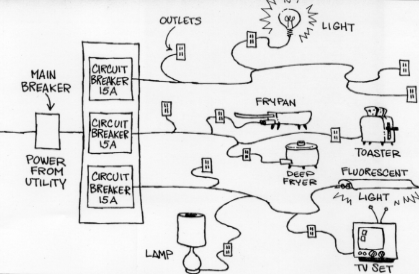 OUTLETS
LIGHT
MAIN
BREAKER
CIRCUIT
BREAKER
15A
FRYPAN
CIRCUIT
BREAKER
15A
POWER
FROM
UTILITY
TOASTER
DEEP
FRYER
CIRCUIT
BREAKER
15A
FLUORESCENT
LIGHT
LAMP
TV SET